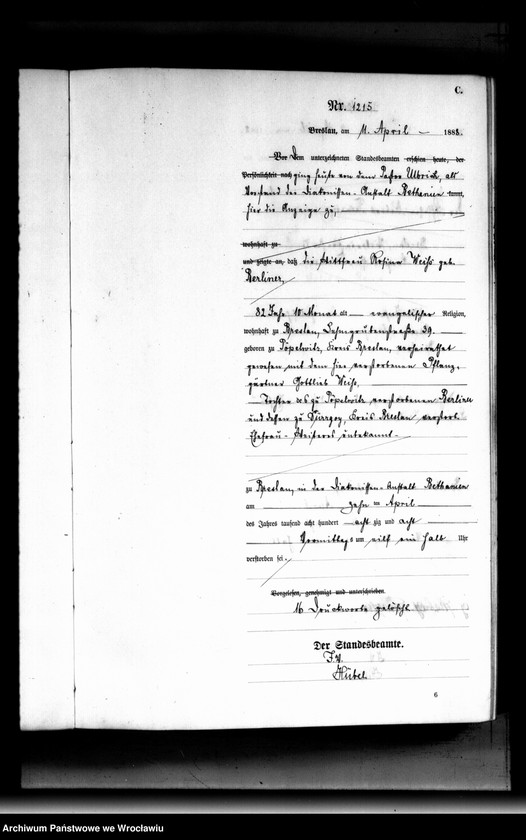 C.
Nr. 1215
Breslau, am 11. April 1888.
Vor Dem unterzeichneten Standesbeamten erschien heute, der
Persönlichkeit nach ging heute von dem Pastor Ulbrich, als
Vorstand der Diakonissen-Anstalt Bethanien kannt,
hier die Anzeige zu,
wohnhaft zu
und zeigte an, daß die Wittfrau Rosina Weiß geb.
Berliner,
82 Jahr 10 Monat alt evangelischer Religion,
wohnhaft zu Breslau, Lehmgrubenstraße 39.
geboren zu Pöpelwitz, Kreis Breslau, verheirathet
gewesen mit dem hier verstorbenen Pflanz-
gärtner Gottlieb Weiß,
Tochter des zu Pöpelwitz verstorbenen Berliner
und dessen zu Kreis Breslau verstorb.
Ehefrau - Weiteres unbekannt -
zu Breslau, in der Diakonissen-Anstalt Bethanien
am zehn ten April
des Jahres tausend acht hundert acht zig und acht
Vormittags um eilf ein halb Uhr
verstorben sei.
Vorgelesen, genehmigt und unterschrieben
16 Druckworte gelöscht
Der Standesbeamte.
I.V.
Hübel
6
Archiwum Państwowe we Wrocławiu